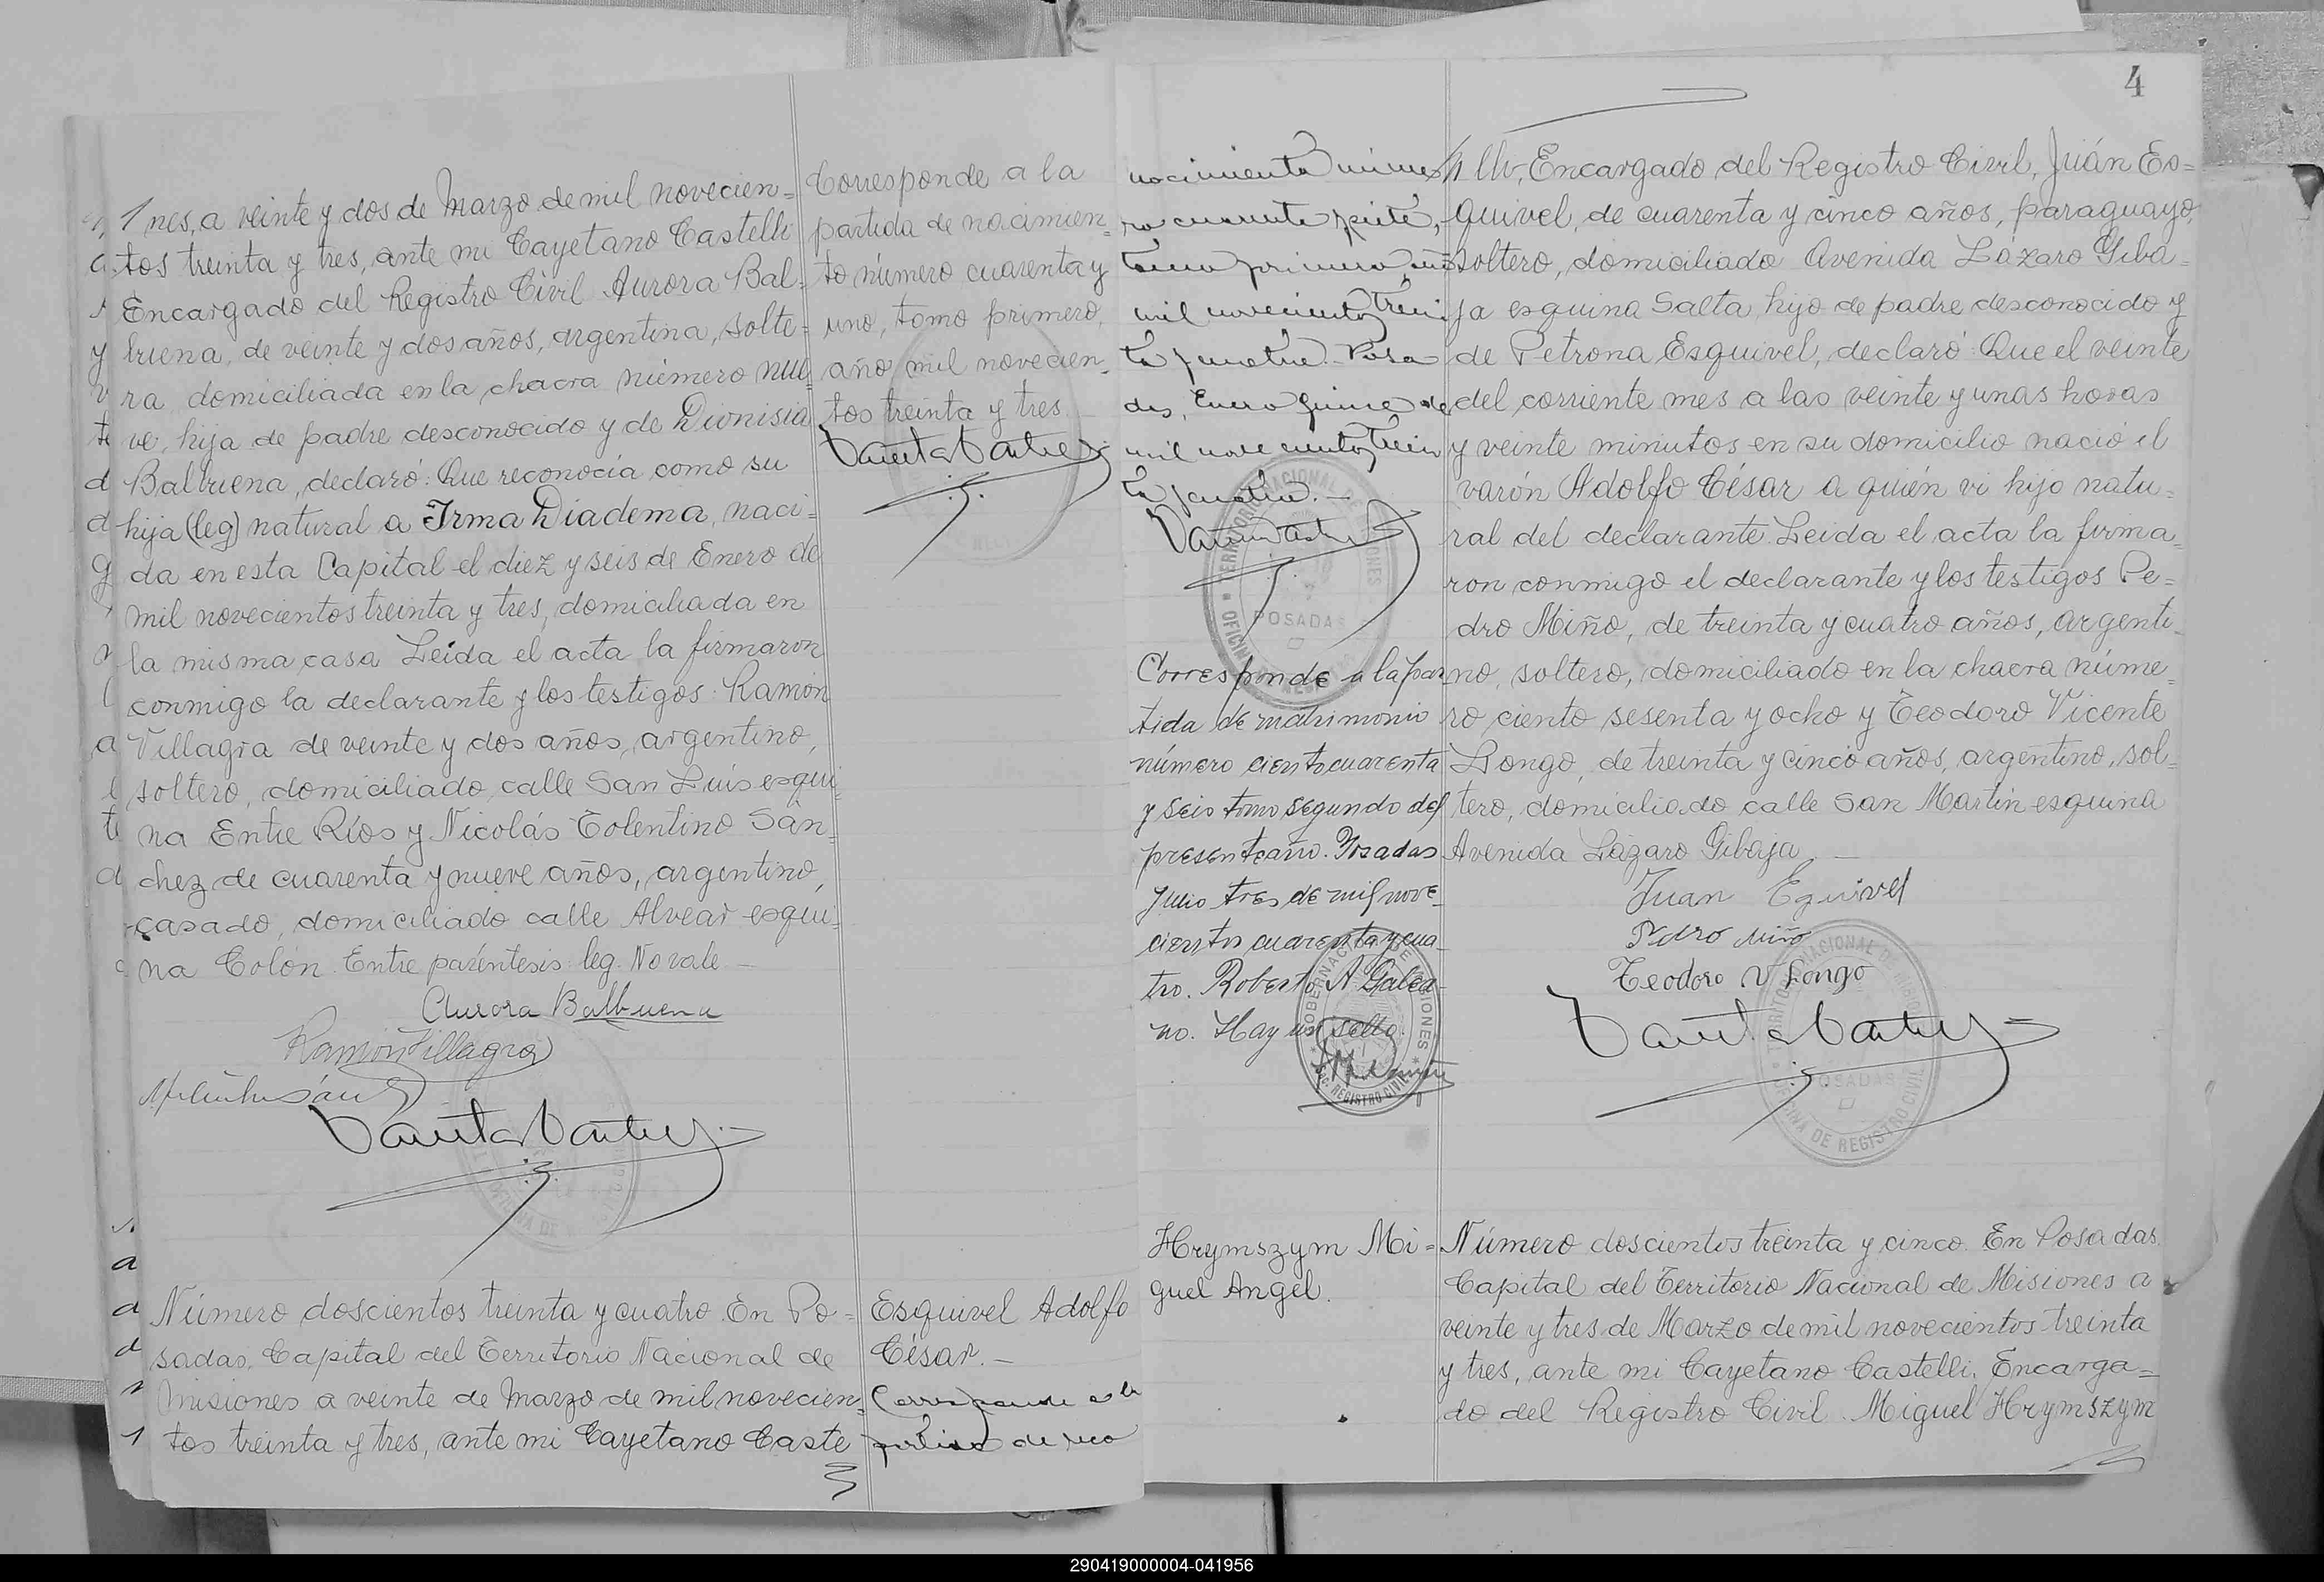 nes, a veinte y dos de Marzo de mil novecien=
tos treinta y tres, ante mi Cayetano Castelli
Encargado del Registro Civil Aurora Bal=
buena, de veinte y dos años, argentina, solte=
ra, domiciliada en la chacra número nue
ve, hija de padre desconocido y de Dionisia
Balbuena, declaró: Que reconocía como su
hija (leg) natural a Irma Diadema, naci=
da en esta Capital el diez y seis de Enero de
mil novecientos treinta y tres, domiciliada en
la misma casa Leída el acta la firmaron
conmigo la declarante y los testigos: Ramón
Villagra de veinte y dos años, argentino,
soltero, domiciliado calle San Luis esqui
na Entre Ríos y Nicolás Tolentino Sán=
chez de cuarenta y nueve años, argentino,
casado, domiciliado calle Alvear esqui=
na Colón. Entre paréntesis: leg. No vale—
Aurora Balbuena
Ramón Villagra
Corresponde a la
partida de nacimien=
to número cuarenta y
uno, tomo primero,
año mil novecien=
tos treinta y tres
Número doscientos treinta y cuatro. En Po=
sadas, Capital del Territorio Nacional de
Misiones a veinte de Marzo de mil novecien=
tos treinta y tres, ante mi Cayetano Caste
Esquivel Adolfo
César.—
Corresponde a la
partida de reco
4
nocimiento núme
ro cuarenta y siete,
tomo primero, año
mil novecientos trein
ta y cuatro. Posa
das, Enero quince de
mil novecientos trein
ta y cuatro.—
TERRITORIO NACIONAL DE MISIONES
POSADAS
Corresponde a la par
tida de matrimonio
número ciento cuarenta
y seis tomo segundo del
presente año. Posadas
Julio tres de mil nove
cientos cuarenta y cua
tro. Roberto A. Galea
no. Hay un sello.
GOBERNACION DE MISIONES
REGISTRO CIVIL
lli, Encargado del Registro Civil, Juán Es=
quivel, de cuarenta y cinco años, paraguayo,
soltero, domiciliado Avenida Lázaro Giba=
ja esquina Salta, hijo de padre desconocido y
de Petrona Esquivel, declaró: Que el veinte
del corriente mes a las veinte y unas horas
y veinte minutos en su domicilio nació el
varón Adolfo César a quién vi hijo natu=
ral del declarante. Leida el acta la firma=
ron conmigo el declarante y los testigos Pe=
dro Miño, de treinta y cuatro años, argenti=
no, soltero, domiciliado en la chacra núme=
ro ciento sesenta y ocho y Teodoro Vicente
Longo, de treinta y cinco años, argentino, sol=
tero, domiciliado calle San Martín esquina
Avenida Lázaro Gibaja
Juan Equivel
Pedro Miño
Teodoro V Longo
TERRITORIO NACIONAL DE MISIONES
POSADAS
OFICINA DE REGISTRO CIVIL
Hrymszym Mi=
guel Angel.
Número doscientos treinta y cinco. En Posadas
Capital del Territorio Nacional de Misiones a
veinte y tres de Marzo de mil novecientos treinta
y tres, ante mi Cayetano Castelli, Encarga=
do del Registro Civil. Miguel Hrymszym
290419000004-041956